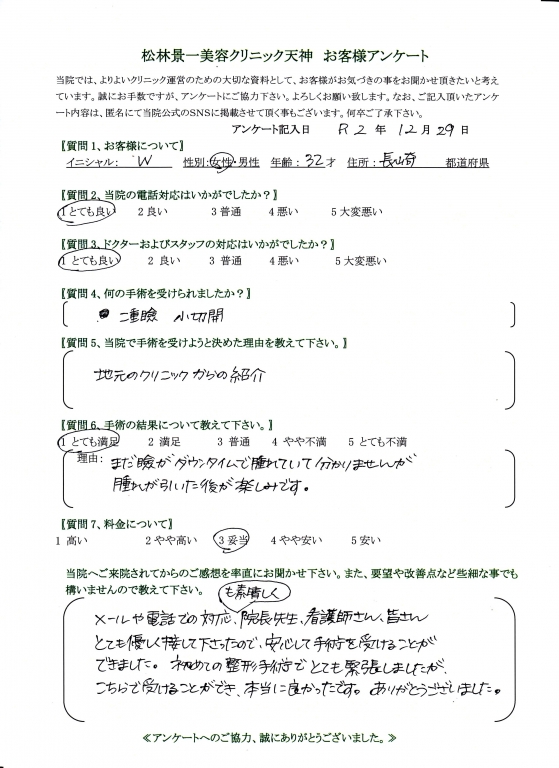 松林景一美容クリニック天神　お客様アンケート
当院では、よりよいクリニック運営のための大切な資料として、お客様がお気づきの事をお聞かせ頂きたいと考え
ています。誠にお手数ですが、アンケートにご協力下さい。よろしくお願い致します。なお、ご記入頂いたアンケ
ート内容は、匿名にて当院公式のSNSに掲載させて頂く事もございます。何卒ご了承下さい。
アンケート記入日　R2年12月29日
【質問1、お客様について】
イニシャル：　W　性別:女性・男性　年齢：32才　住所：長崎　都道府県
【質問2、当院の電話対応はいかがでしたか？】
1とても良い　2良い　3普通　4悪い　5大変悪い
【質問3、ドクターおよびスタッフの対応はいかがでしたか？】
1 とても良い　2 良い　3 普通　4悪い　5大変悪い
【質問4、何の手術を受けられましたか？】
二重瞼　小切開
【質問5、当院で手術を受けようと決めた理由を教えて下さい。】
地元のクリニックからの紹介
【質問6、手術の結果について教えて下さい。】
1 とても満足　2 満足　3 普通　4 やや不満　5 とても不満
理由: まだ瞼がダウンタイムで腫れていて分かりませんが
腫れが引いた後が楽しみです。
【質問7、料金について】
1 高い　2やや高い　3妥当　4やや安い　5安い
当院へご来院されてからのご感想を率直にお聞かせ下さい。また、要望や改善点など些細な事でも
構いませんので教えて下さい。
も素晴しく
メールや電話での対応、院長先生、看護師さん、皆さん
とても優しく接して下さったので、安心して手術を受けることが
できました。初めての整形手術でとても緊張しましたが、
こちらで受けることができ、本当に良かったです。ありがとうございました。
≪アンケートへのご協力、誠にありがとうございました。≫